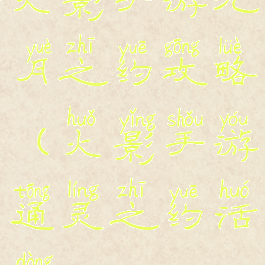 yuè zhī yuē gōng lüè
月之约攻略
huǒ yǐng shǒu yóu
（火影手游
tōng líng zhī yuē huó
通灵之约活
dòng